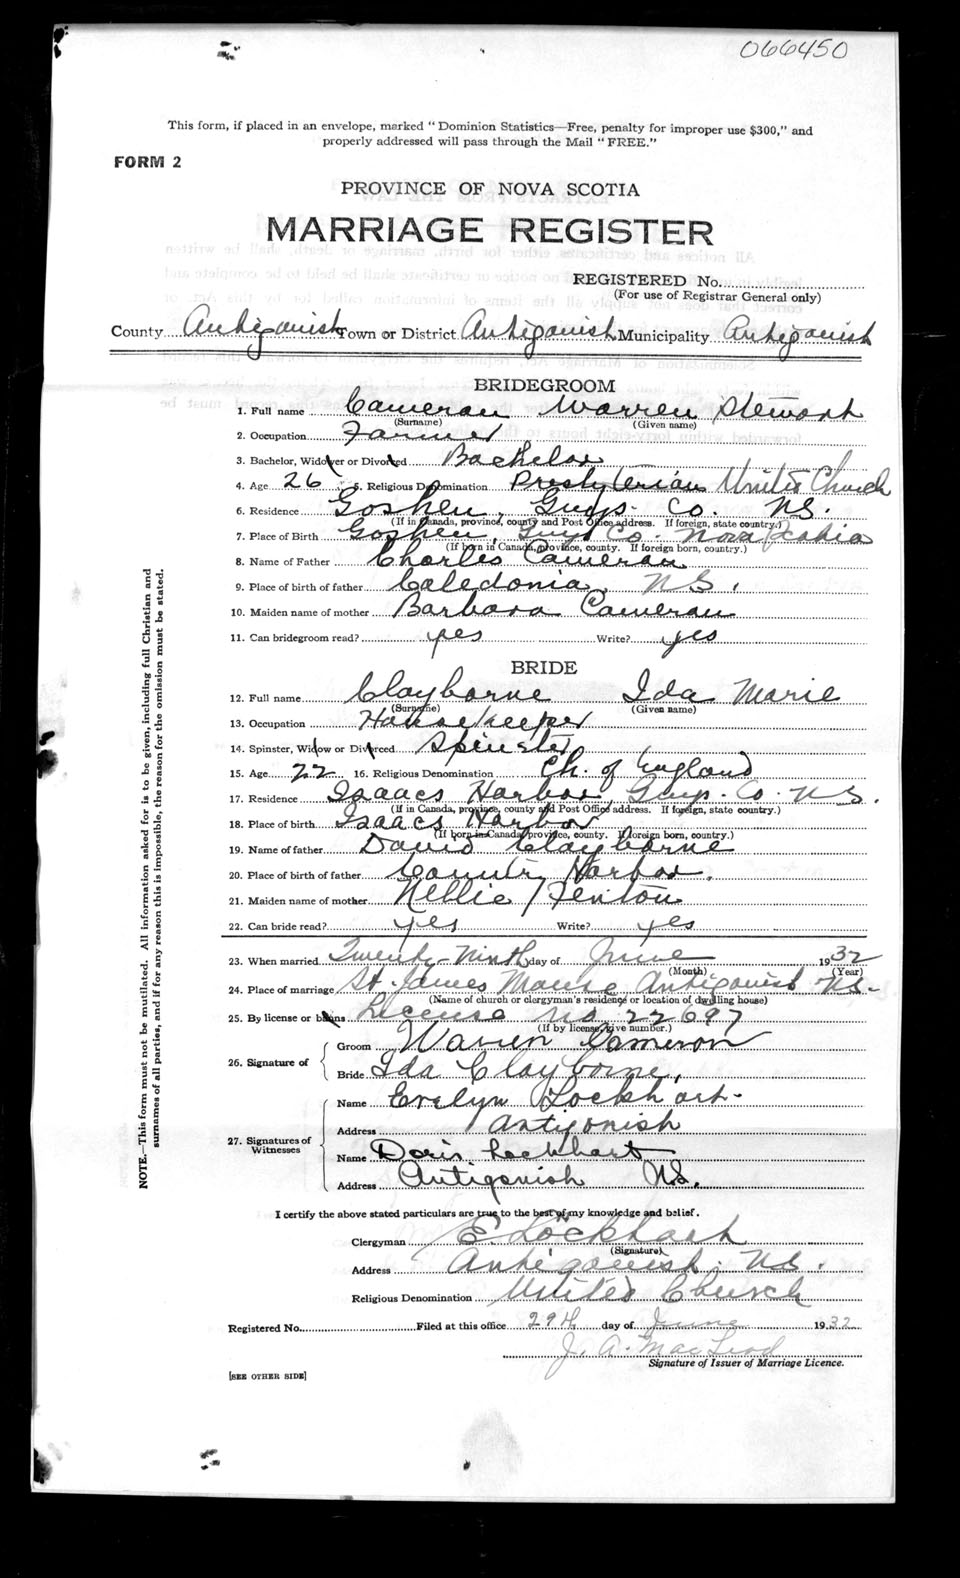 066450
This form, if placed in an envelope, marked "Dominion Statistics—Free, penalty for improper use $300," and
properly addressed will pass through the Mail "FREE."
FORM 2
PROVINCE OF NOVA SCOTIA
MARRIAGE REGISTER
REGISTERED No.
(For use of Registrar General only)
County Antigonish Town or District Antigonish Municipality Antigonish
BRIDEGROOM
1. Full name Cameron Warren Stewart
(Surname) (Given name)
2. Occupation Farmer
3. Bachelor, Widower or Divorced Bachelor
4. Age 26 5. Religious Denomination Presbyterian United Church
6. Residence Goshen, Guys. Co. N.S.
(If in Canada, province, county and Post Office address. If foreign, state country.)
7. Place of Birth Goshen, Guys Co. Nova Scotia
(If born in Canada, province, county. If foreign born, country.)
8. Name of Father Charles Cameron
9. Place of birth of father Caledonia, N.S.
10. Maiden name of mother Barbara Cameron
11. Can bridegroom read? yes Write? yes
BRIDE
12. Full name Clayborne Ida Marie
(Surname) (Given name)
13. Occupation Housekeeper
14. Spinster, Widow or Divorced Spinster
15. Age 22 16. Religious Denomination Ch. of England
17. Residence Isaacs Harbor, Guys. Co. N.S.
(If in Canada, province, county and Post Office address. If foreign, state country.)
18. Place of birth Isaacs Harbor
(If born in Canada, province, county. If foreign born, country.)
19. Name of father David Clayborne
20. Place of birth of father Country Harbor.
21. Maiden name of mother Nellie Fenton
22. Can bride read? yes Write? yes
23. When married Twenty-Ninth day of June 1932
(Month) (Year)
24. Place of marriage St. James Manse Antigonish N.S.
(Name of church or clergyman's residence or location of dwelling house)
25. By license or banns License No 22697
(If by license, give number.)
26. Signature of
Groom Warren Cameron
Bride Ida Clayborne.
27. Signatures of Witnesses
Name Evelyn Lockhart
Address Antigonish
Name Doris Lockhart
Address Antigonish N.S.
I certify the above stated particulars are true to the best of my knowledge and belief.
Clergyman E. Lockhart
(Signature)
Address Antigonish. N.S.
Religious Denomination United Church
Registered No. Filed at this office 29th day of June 1932
J. A. MacLeod
Signature of Issuer of Marriage Licence.
[SEE OTHER SIDE]
NOTE.—This form must not be mutilated. All information asked for is to be given, including full Christian and
surnames of all parties, and if for any reason this is impossible, the reason for the omission must be stated.